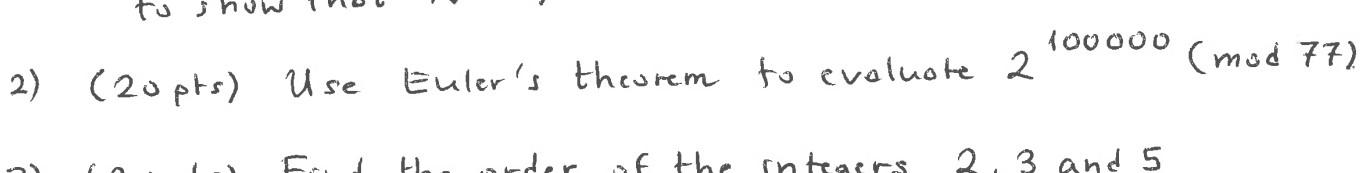 to show that
2) (20 pts) Use Euler's theorem to evaluate 2^100000 (mod 77)
Find the order of the integers 2, 3 and 5